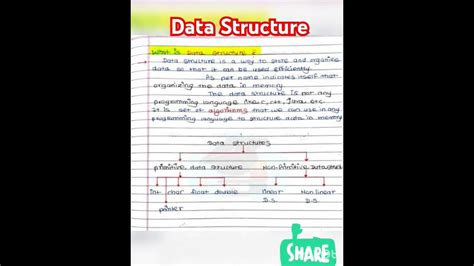 Data Structure
What is Data structure ?
Data structure is a way to store and organize
data so that it can be used efficiently.
As per name indicates itself that
organizing the data in memory.
The data structure is not any
programming language like C, C++, Java etc.
It is set of algorithms that we can use in any
programming language to structure data in memory
Data structures
primitive data structure Non-Primitive Data
int char float double linear Non linear
D.S. D.S.
pointer
SHARE